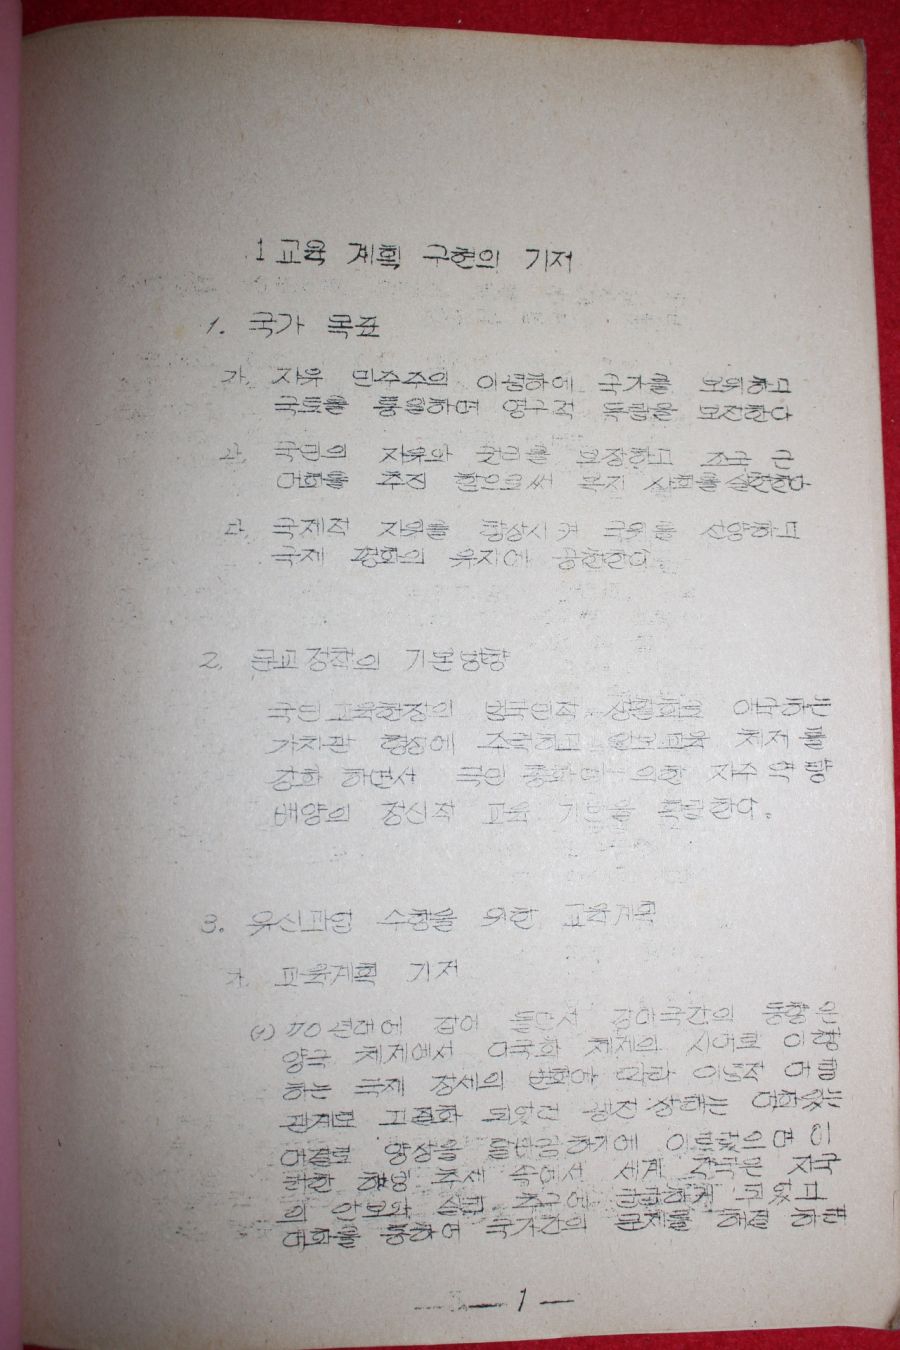 1 교육 계획 구현의 기저
1. 국가 목표
가. 자유 민주주의 이념하에 국가를 보위하고
국토를 통일하며 영구적 독립을 보전한다
나. 국민의 자유와 권리를 보장하고 조국 근
대화를 추진 함으로써 복지 사회를 실현한다
다. 국제적 지위를 향상시켜 국위를 선양하고
국제 평화의 유지에 공헌한다.
2. 문교정책의 기본방향
국민교육헌장의 범국민적 생활화로 애국하는
가치관 형성에 주력하고 안보교육 체제를
강화 하면서 국민 총화에 의한 자주 역량
배양의 정신적 교육 기반을 확립한다.
3. 유신과업 수행을 위한 교육계획
가. 교육계획 기저
(1) 70년대에 접어 들면서 강대국간의 동향은
양극 체제에서 다극화 체제의 시대로 이행
하는 국제 정세의 변화에 따라 이념적 대립
관계로 고질화 되었던 냉전 상태는 대화있는
대결로 양상을 탈바꿈하기에 이르렀으며 이
러한 해빙 추세 속에서 세계 각국은 자국
의 안보와 실리 추구에 급급하게 되었고
대화를 통하여 국가간의 문제를 해결 하려
— 1 —